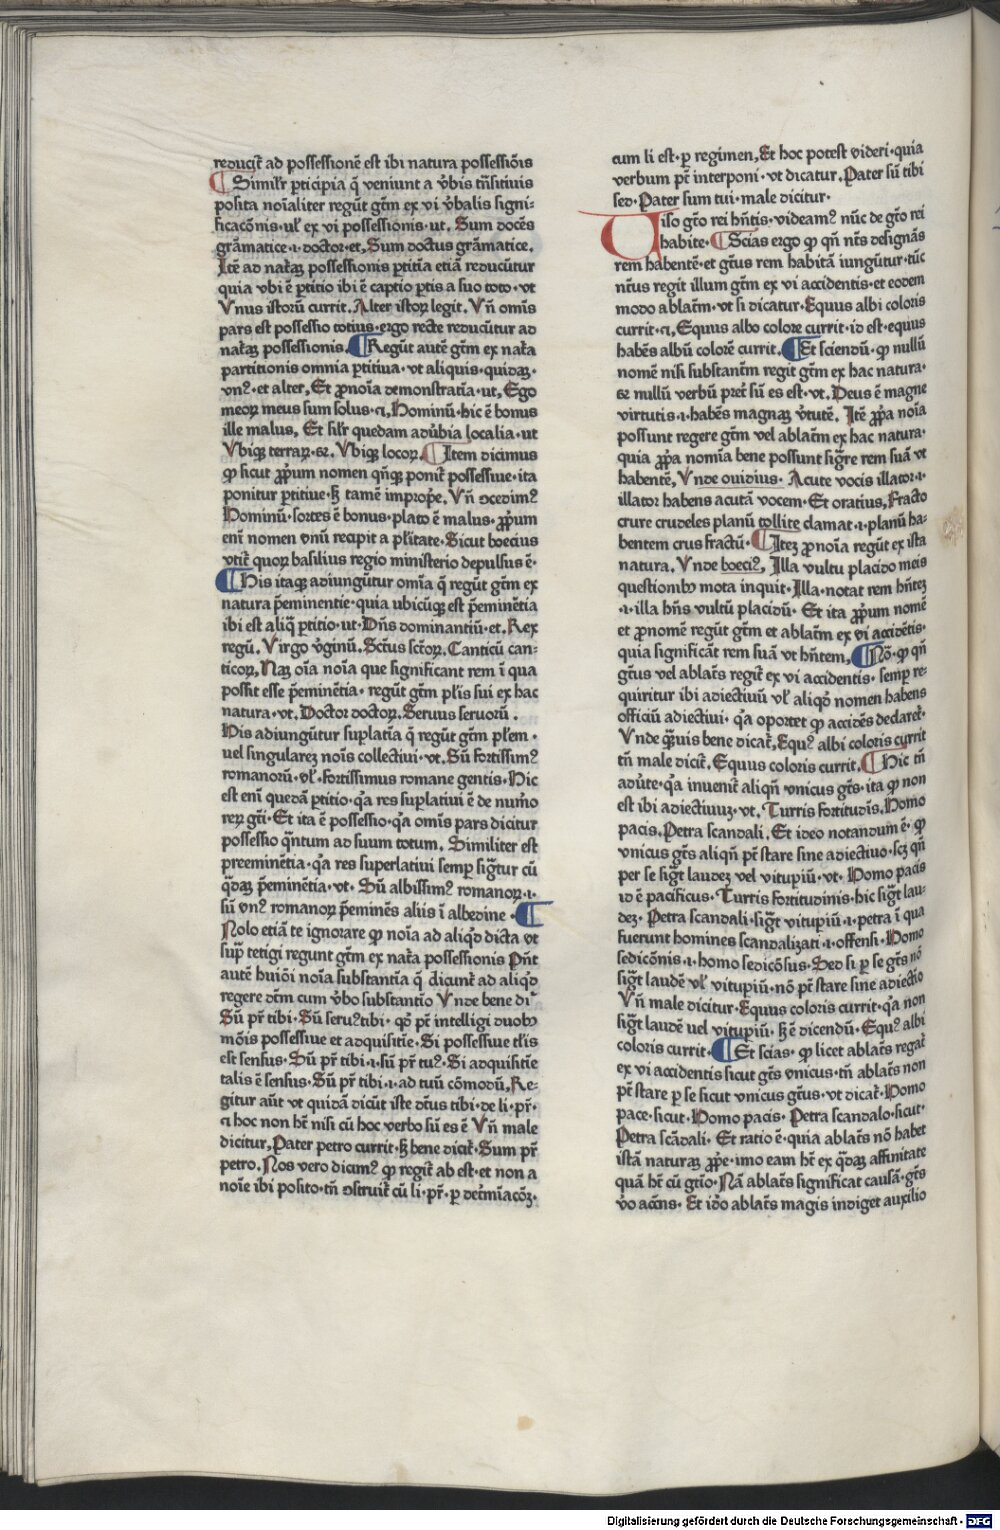 reducit᷑ ad possessionē est ibi natura possessiōis
¶ Similr̄ ꝑticipia q̄ veniunt a v̄bis trāsitiuis
posita noīaliter regūt gt̄m ex vi v̄balis signi⸗
ficacōnis·ul̓ ex vi possessionis·ut. Sum docēs
grāmatice·i·doctor·et. Sum doctus grāmatice.
Itē ad nat̄aꝫ possessionis ꝑtitīa etiā reducūtur
quia vbi ē ꝑtitio ibi ē captio ꝑtis a suo toto·vt
Vnus istorū currit. Alter istoꝝ legit. Vn̄ omīs
pars est possessio totius·ergo recte reducūtur ad
nat̄aꝫ possessionis. ¶ Regūt autē gt̄m ex nat̄a
partitionis omnia ꝑtitiua·vt aliquis·quidaꝫ·
vnꝰ·et alter, Et ꝓnoīa demonstratīa·ut, Ego
meoꝝ meus sum solus·ci, Hominū·hic ē bonus
ille malus, Et silr̄ quedam adūbia localia·ut
Vbiqꝫ terraꝝ·sꝛ. Vbiqꝫ locoꝝ. ¶ Item dicimus
ꝙ sicut ꝓpum nomen qn̄qꝫ ponit᷑ possessiue·ita
ponitur ꝑtitiue·sꝫ tamē impropͤe. Vn̄ ꝯcedimꝰ
Hominū·sortes ē bonus·plato ē malus·ꝓpum
enī nomen vnū recipit a pl̄itate·Sicut boecius
vtit᷑ quoꝝ basilius regio ministerio depulsus ē·
¶ His itaqꝫ adiungūtur omīa q̄ regūt gt̄m ex
natura p̄eminentie·quia ubicūqꝫ est p̄eminētia
ibi est aliq̄ ꝑtitio·ut·Dn̄s dominantiū·et. Rex
regū. Virgo v̄ginū. Sct̄us sct̄oꝝ. Canticū can⸗
ticoꝝ, Naꝫ oīa noīa que significant rem ī qua
possit esse p̄eminētia·regūt gt̄m pl̄is sui ex hac
natura·vt. Doctor doctoꝝ. Seruus seruorū.
His adiungūtur supl̄atīa q̄ regūt gt̄m pl̄em·
uel singularez noīs collectiui·vt. Sū fortissimꝰ
romanorū·vl̓·fortissimus romane gentis·Hic
est enī quedā ꝑtitio·qͣa res suplatiui ē de num̄o
reꝝ gt̄i·Et ita ē possessio·qͣa omīs pars dicitur
possessio qn̄tum ad suum totum. Similiter est
preeminētia·qͣa res superlatiui semꝑ sigt᷑ur cū
qͣdaꝫ p̄eminētia·vt· Sū albissimꝰ romanoꝝ·i·
sū vnꝰ romanoꝝ p̄eminēs aliis ī albedine· ¶
Nolo etiā te ignorare ꝙ noīa ad aliqͥd dicta vt
supͣ tetigi regunt gt̄m ex nat̄a possessionis Pn̄t
autē huiōi noīa substantīa q̄ dicunt᷑ ad aliqͥd
regere dt̄m cum v̄bo substantīo Vnde bene di⸗
Sū pr̄ tibi·Sū seruꝰ tibi· qͦd pt̄ intelligi duobꝰ
mōis possessiue et adquisitīe·Si possessiue t̄lis
est sensus·Sū pr̄ tibi·i·sū pr̄ tuꝰ·Si adquisitīe
talis ē sensus·Sū pr̄ tibi·i·ad tuū cōmodū, Re⸗
gitur aūt vt quidā dicūt iste dt̄us tibi·de li·pr̄·
ci hoc non ht̄ nisi cū hoc verbo sū es ē Vn̄ male
dicitur, Pater petro currit·sꝫ bene dicit᷑·Sum pr̄
petro. Nos vero dicimꝰ ꝙ regit᷑ ab est·et non a
noīe ibi posito·tn̄ ꝯstruit᷑ cū li·pr̄·ꝑ det̄mīacōꝫ·
cum li est·ꝑ regimen, Et hoc potest videri·quia
verbum pt̄ interponi·vt dicatur. Pater sū tibi
sed·Pater sum tui·male dicitur·
Viso gt̄o rei hn̄tis·videamꝰ nūc de gt̄o rei
habite· ¶ Scias ergo ꝙ qn̄ nt̄s designās
rem habentē·et gt̄us rem habitā iungūtur·tūc
nt̄us regit illum gt̄m ex vi accidentis·et eodem
modo ablat̄m·vt si dicatur·Equus albi coloris
currit·ci, Equus albo colore currit·id est·equus
habēs albū colorē currit. ¶ Et sciendū·ꝙ nullū
nomē nisi substant̄m regit gt̄m ex hac natura·
sꝛ nullū verbū pret᷑ sū es est·vt. Deus ē magne
virtutis·i·habēs magnaꝫ v̓tutē. Itē ꝓpa noīa
possunt regere gt̄m vel ablat̄m ex hac natura·
quia ꝓpa nomīa bene possunt sigr̄e rem suā vt
habentē, Vnde ouidius· Acute vocis illator·i·
illator habens acutā vocem·Et oratius, Fracto
crure crudeles planū tollite clamat·i·planū ha⸗
bentem crus fractū· ¶ Iteꝫ ꝓnoīa regūt ex ista
natura. Vnde boeciꝰ, Illa vultu placido meis
questionibꝰ mota inquit·Illa·notat rem hn̄teꝫ
·i·illa hn̄s vultū placidū· Et ita ꝓpum nomē
et ꝓnomē regūt gt̄m et ablat̄m ex vi accidētis·
quia significāt rem suā vt hn̄tem, ¶ Nō·ꝙ qn̄
gt̄us vel ablat̄s regit᷑ ex vi accidentis·semꝑ re⸗
quiritur ibi adiectiuū vl̓ aliqͦd nomen habens
officiū adiectiui·qͣa oportet ꝙ accidēs declaret᷑·
Vnde qͣuis bene dicat᷑, Equꝰ albi coloris currit
tn̄ male dicit᷑. Equus coloris currit. ¶ Hic tn̄
adūte·qͣa inuenit᷑ aliqn̄ vnicus gt̄s·ita ꝙ non
est ibi adiectiuuꝫ·vt. Turris fortitudīs. Homo
pacis. Petra scandali. Et ideo notandum ē·ꝙ
vnicus gt̄s aliqn̄ pt̄ stare sine adiectiuo·scꝫ qn̄
per se sigt᷑ laudeꝫ vel vitupiū·vt·Homo pacis
id ē pacificus·Turris fortitudinis·hic sigt᷑ lau⸗
deꝫ·Petra scandali·sigt᷑ vitupiū·i·petra ī qua
fuerunt homines scandalizati·i·offensi·Homo
sedicōnis·i·homo sedicōsus·Sed si ꝑ se gt̄s nō
sigt᷑ laudē vl̓ vitupiū·nō pt̄ stare sine adiectīo
Vn̄ male dicitur·Equus coloris currit·qͣa non
sigt᷑ laudē uel vitupiū·sꝫ ē dicendū·Equꝰ albi
coloris currit· ¶ Et scias·ꝙ licet ablat̄s regat᷑
ex vi accidentis sicut gt̄s vnicus·tn̄ ablat̄s non
pt̄ stare ꝑ se sicut vnicus gt̄us·vt dicat᷑·Homo
pace·sicut·Homo pacis· Petra scandalo·sicut·
Petra scādali· Et ratio ē·quia ablat̄s nō habet
istā naturaꝫ ꝓpͤe·imo eam ht̄ ex qͣdaꝫ affinitate
quā ht̄ cū gt̄io·Nā ablat̄s significat causā·gt̄s
v̄o accn̄s· Et idͦo ablat̄s magis indiget auxilio
Digitalisierung gefördert durch die Deutsche Forschungsgemeinschaft - DFG